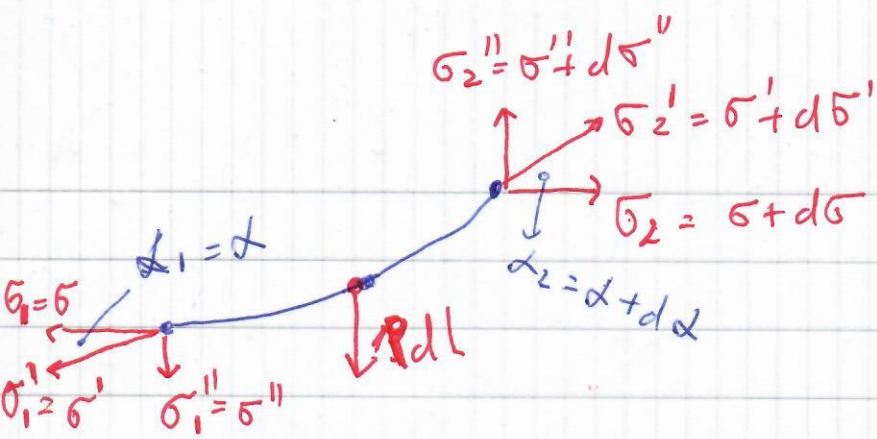 σ₂'' = σ'' + dσ''
σ₂' = σ' + dσ'
σ₂ = σ + dσ
α₁ = α
α₂ = α + dα
σ₁ = σ
ρdl
σ₁' = σ'
σ₁'' = σ''